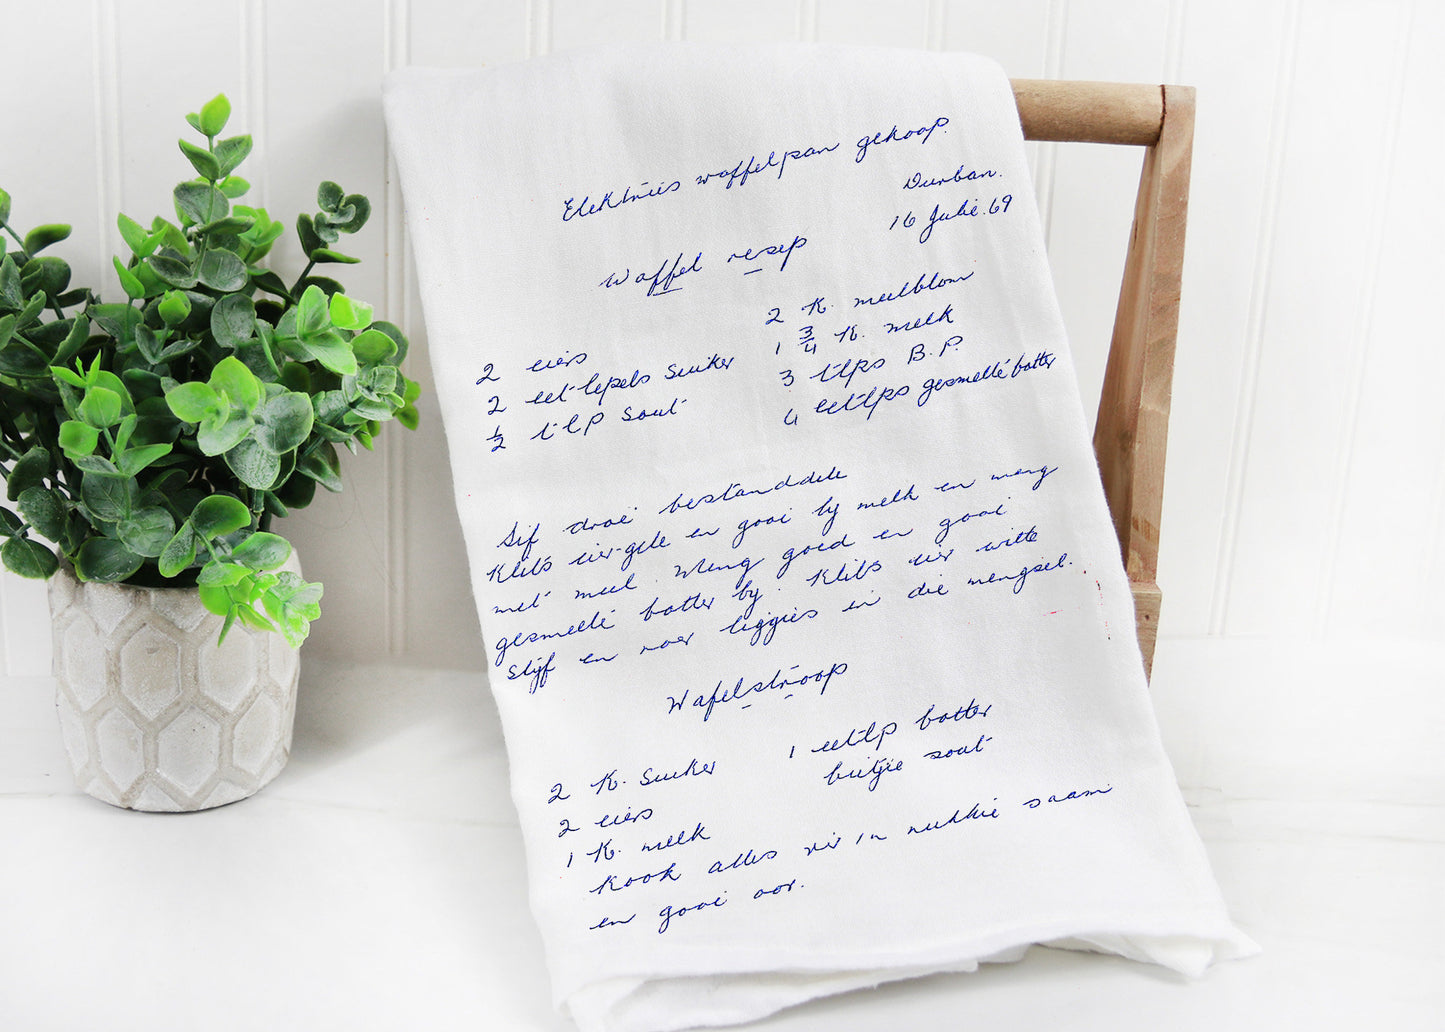 Elektriese waffelpan gekoop.
Durban.
16 Julie. 69
Waffel resep
2 eiers
2 eet-lepels Suiker
½ t-lp Sout
2 K. meelblom
1 ¾ K. melk
3 t-lps B.P.
4 eet-lps gesmelte botter
Sif droë bestanddele
Klits eier-gele en gooi by melk en meng
met meel. Meng goed en gooi
gesmelte botter by. Klits eier witte
Styf en roer liggies in die mengsel.
Wafelstroop
2 K. Suiker
2 eiers
1 K. melk
1 eet-lp botter
bietjie sout
Kook alles vir 1n rukkie saam
en gooi oor.